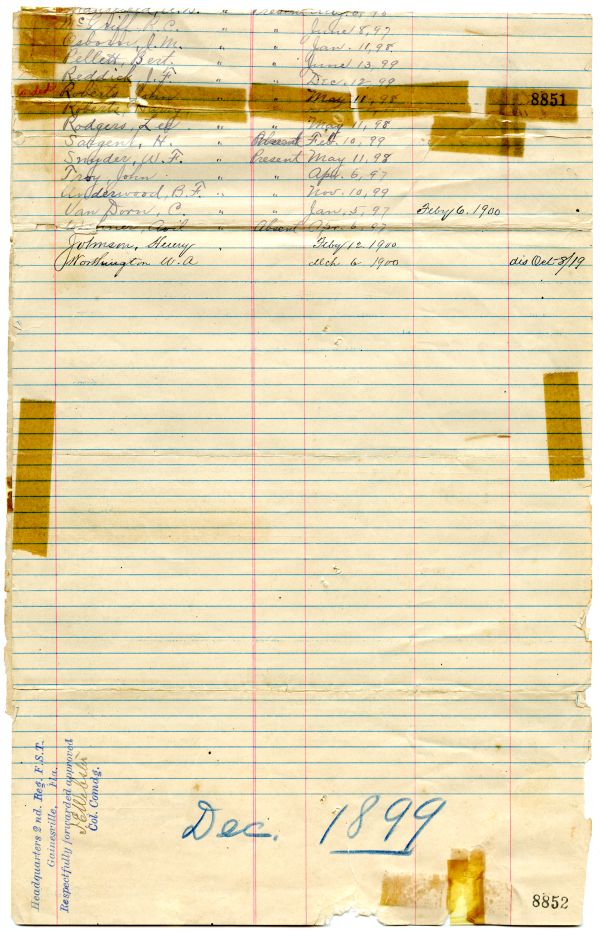 Present
McGriff, R.C. " " June 8, 97
Osborn, J.M. " " Jan. 11, 98
Pellett, Bert. " " June 13, 99
Reddick, J.F. " " Dec. 12, 99
Roberts, John " " May 11, 98
8851
Roberts,
Rodgers, Lee " " May 11, 98
Sargent, H. Absent Feb. 10, 99
Snyder, W.F. Present May 11, 98
Troy, John " " Apr. 6, 97
Underwood, B.F. " " Nov. 10, 99
Van Dorn, C. " " Jan. 5, 97 Feby 6. 1900
Absent Apr. 6, 97
Johnson, Henry " Feby 12 1900
Worthington W.A Mch 6 1900 dis Oct 3/19
Headquarters 2nd. Reg. F.S.T.
Gainesville, Fla.
Respectfully forwarded approved
Col. Comdg.
Dec. 1899
8852